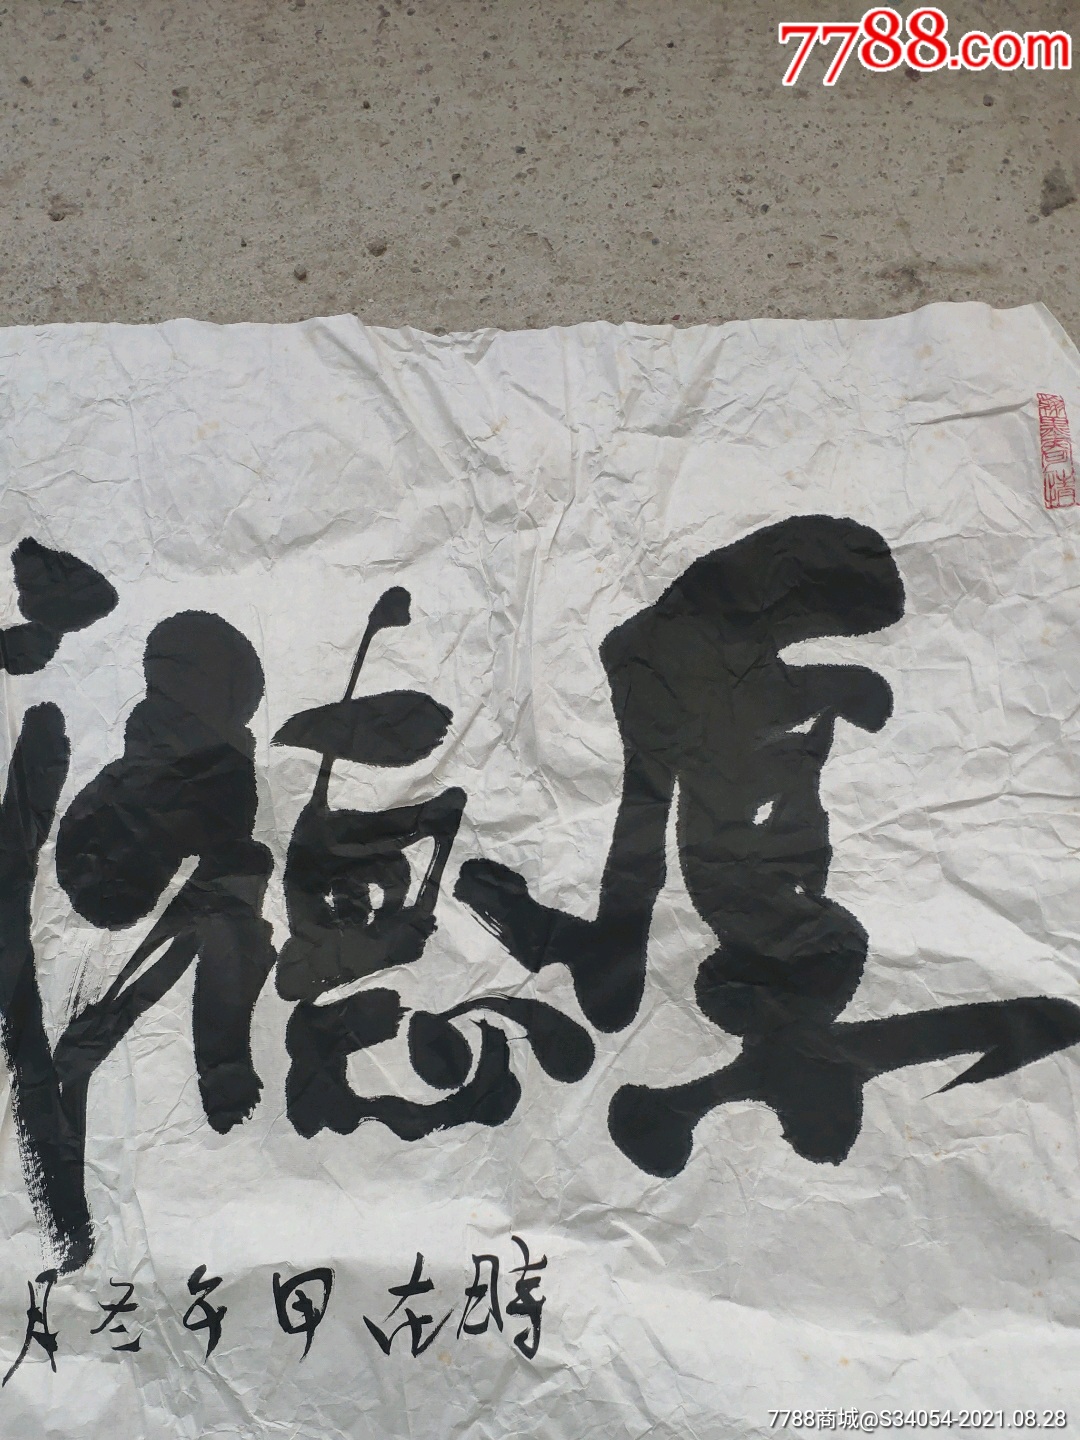 7788.com
翰墨春情
厚德
時在甲午冬月
7788商城@S34054-2021.08.28